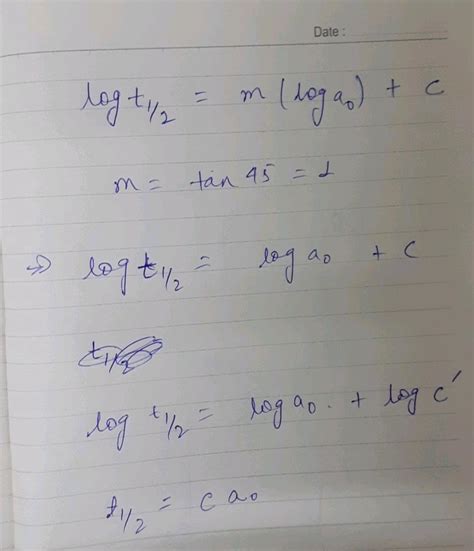 Date :
log t1/2 = m (log a0) + C
m = tan 45 = 1
⇒ log t1/2 = log a0 + C
t1/2
log t1/2 = log a0 . + log C′
t1/2 = c a0